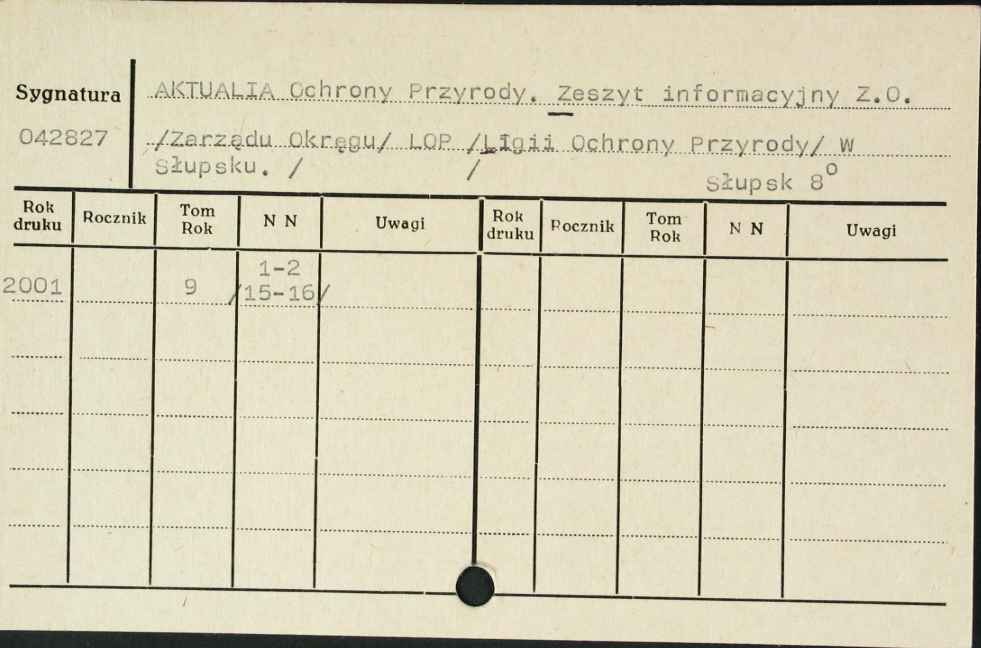 Sygnatura AKTUALIA Ochrony Przyrody. Zeszyt informacyjny Z.O.
042827 /Zarządu Okręgu/ LOP /LIgii Ochrony Przyrody/ W
Słupsku. / /
Słupsk 8°
Rok druku Rocznik Tom Rok N N Uwagi Rok druku Rocznik Tom Rok N N Uwagi
1-2
2001 9 /15-16/